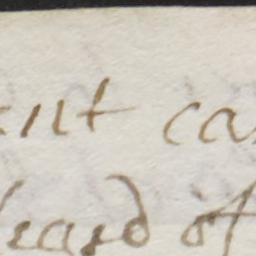 ent ca
heard of